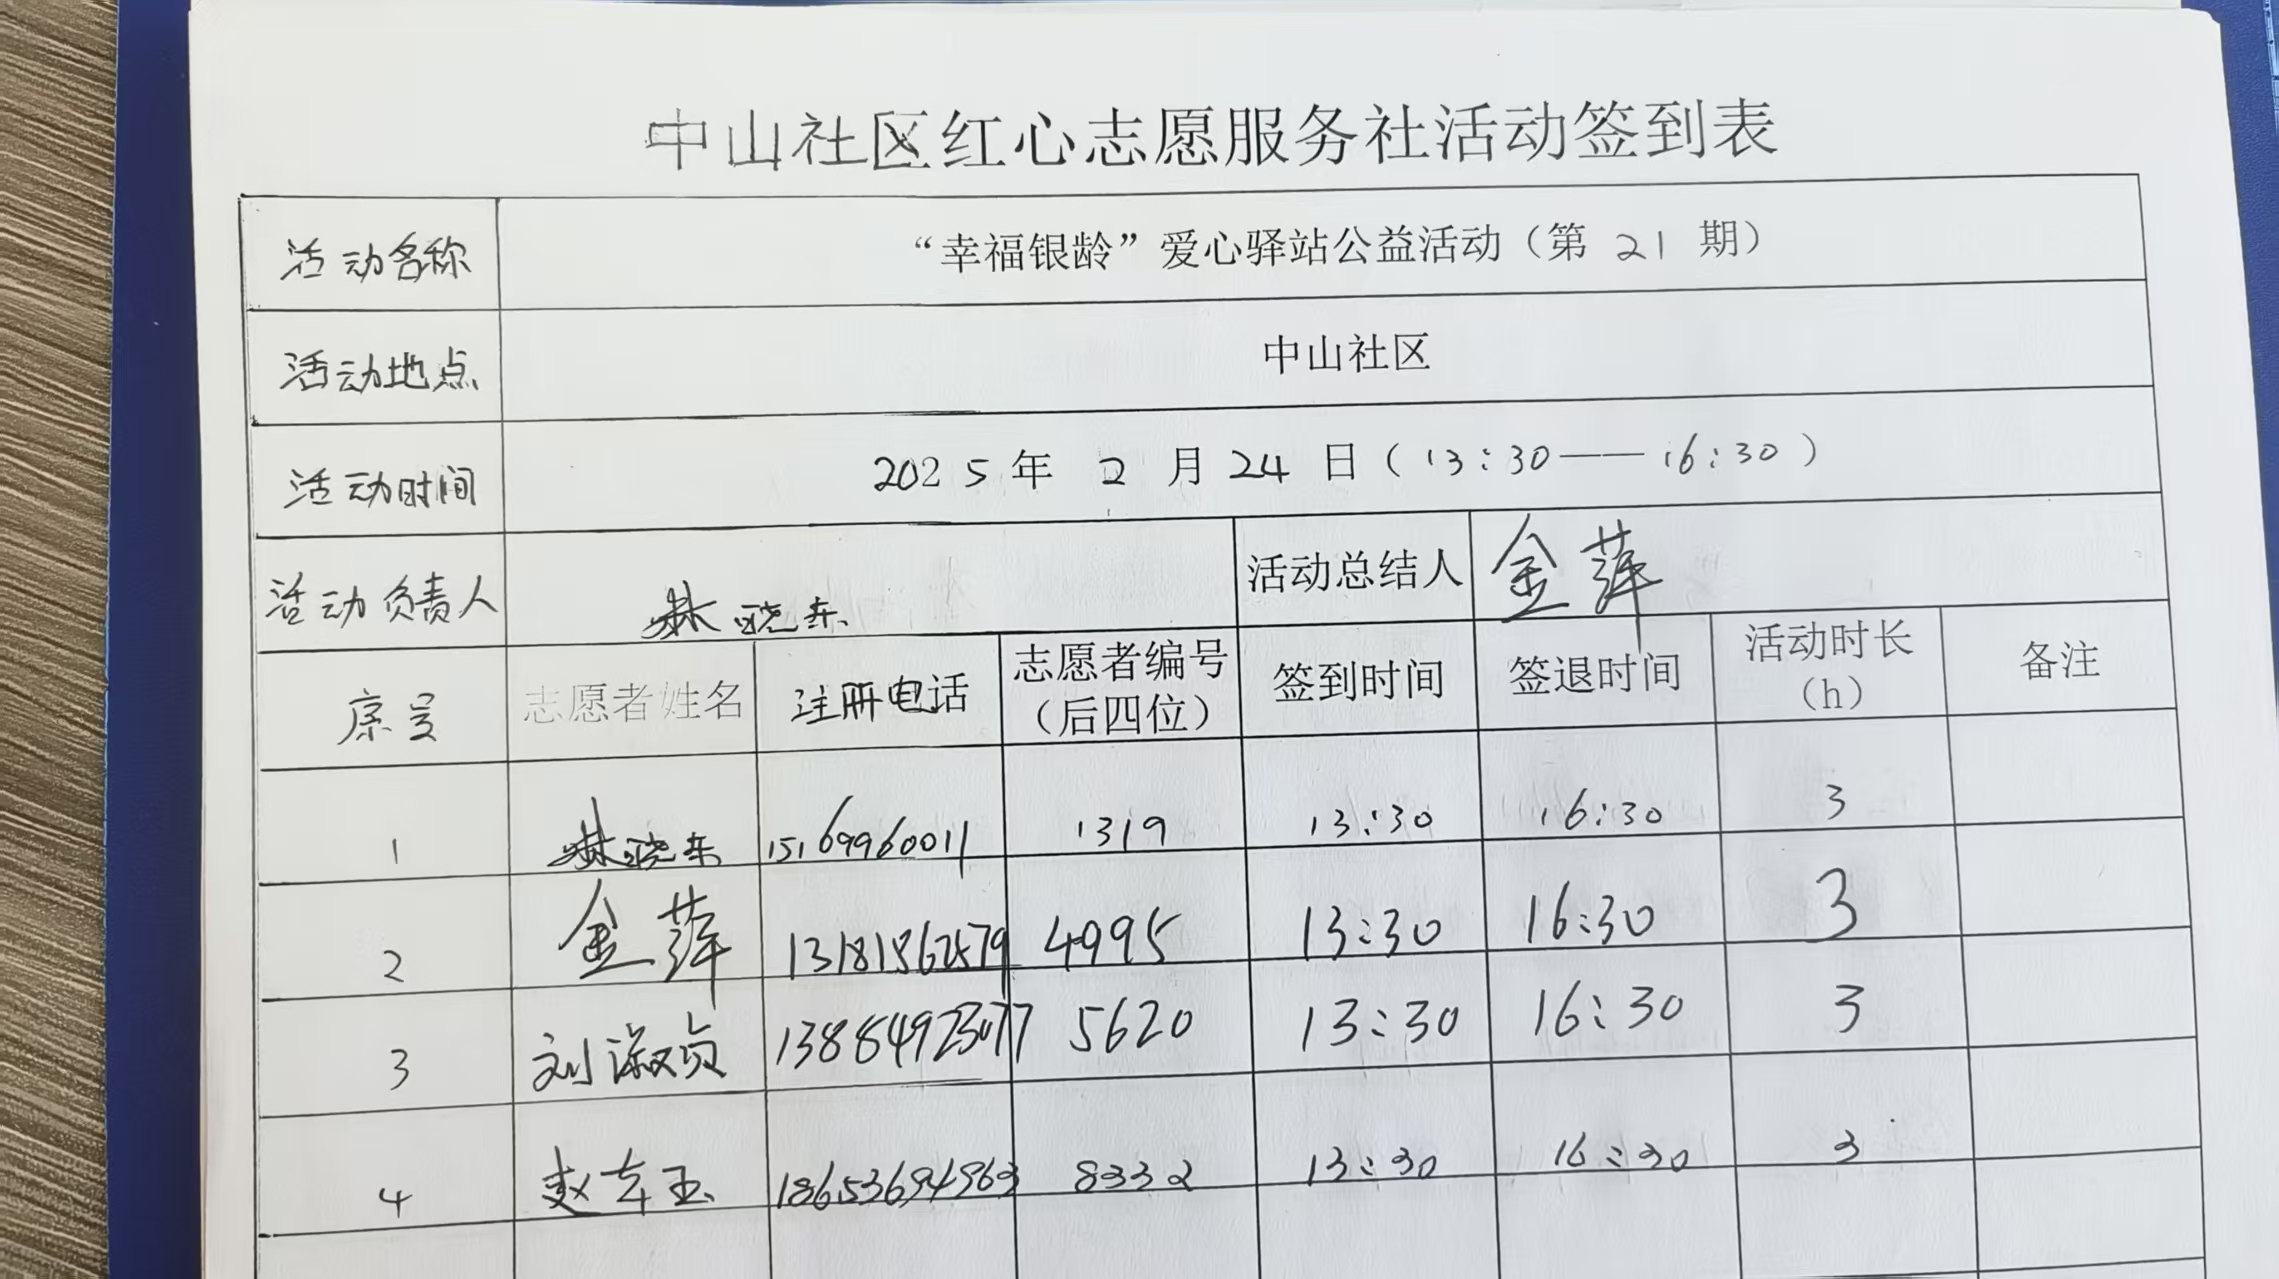 中山社区红心志愿服务社活动签到表
活动名称 “幸福银龄”爱心驿站公益活动（第 21 期）
活动地点 中山社区
活动时间 2025年 2 月 24 日（13:30——16:30）
活动负责人 林晓东 活动总结人 金萍
序号 志愿者姓名 注册电话 志愿者编号（后四位） 签到时间 签退时间 活动时长（h） 备注
1 林晓东 15169960011 1319 13:30 16:30 3
2 金萍 13181862579 4995 13:30 16:30 3
3 刘淑贞 13884923077 5620 13:30 16:30 3
4 赵东玉 18653694963 8332 13:30 16:30 3